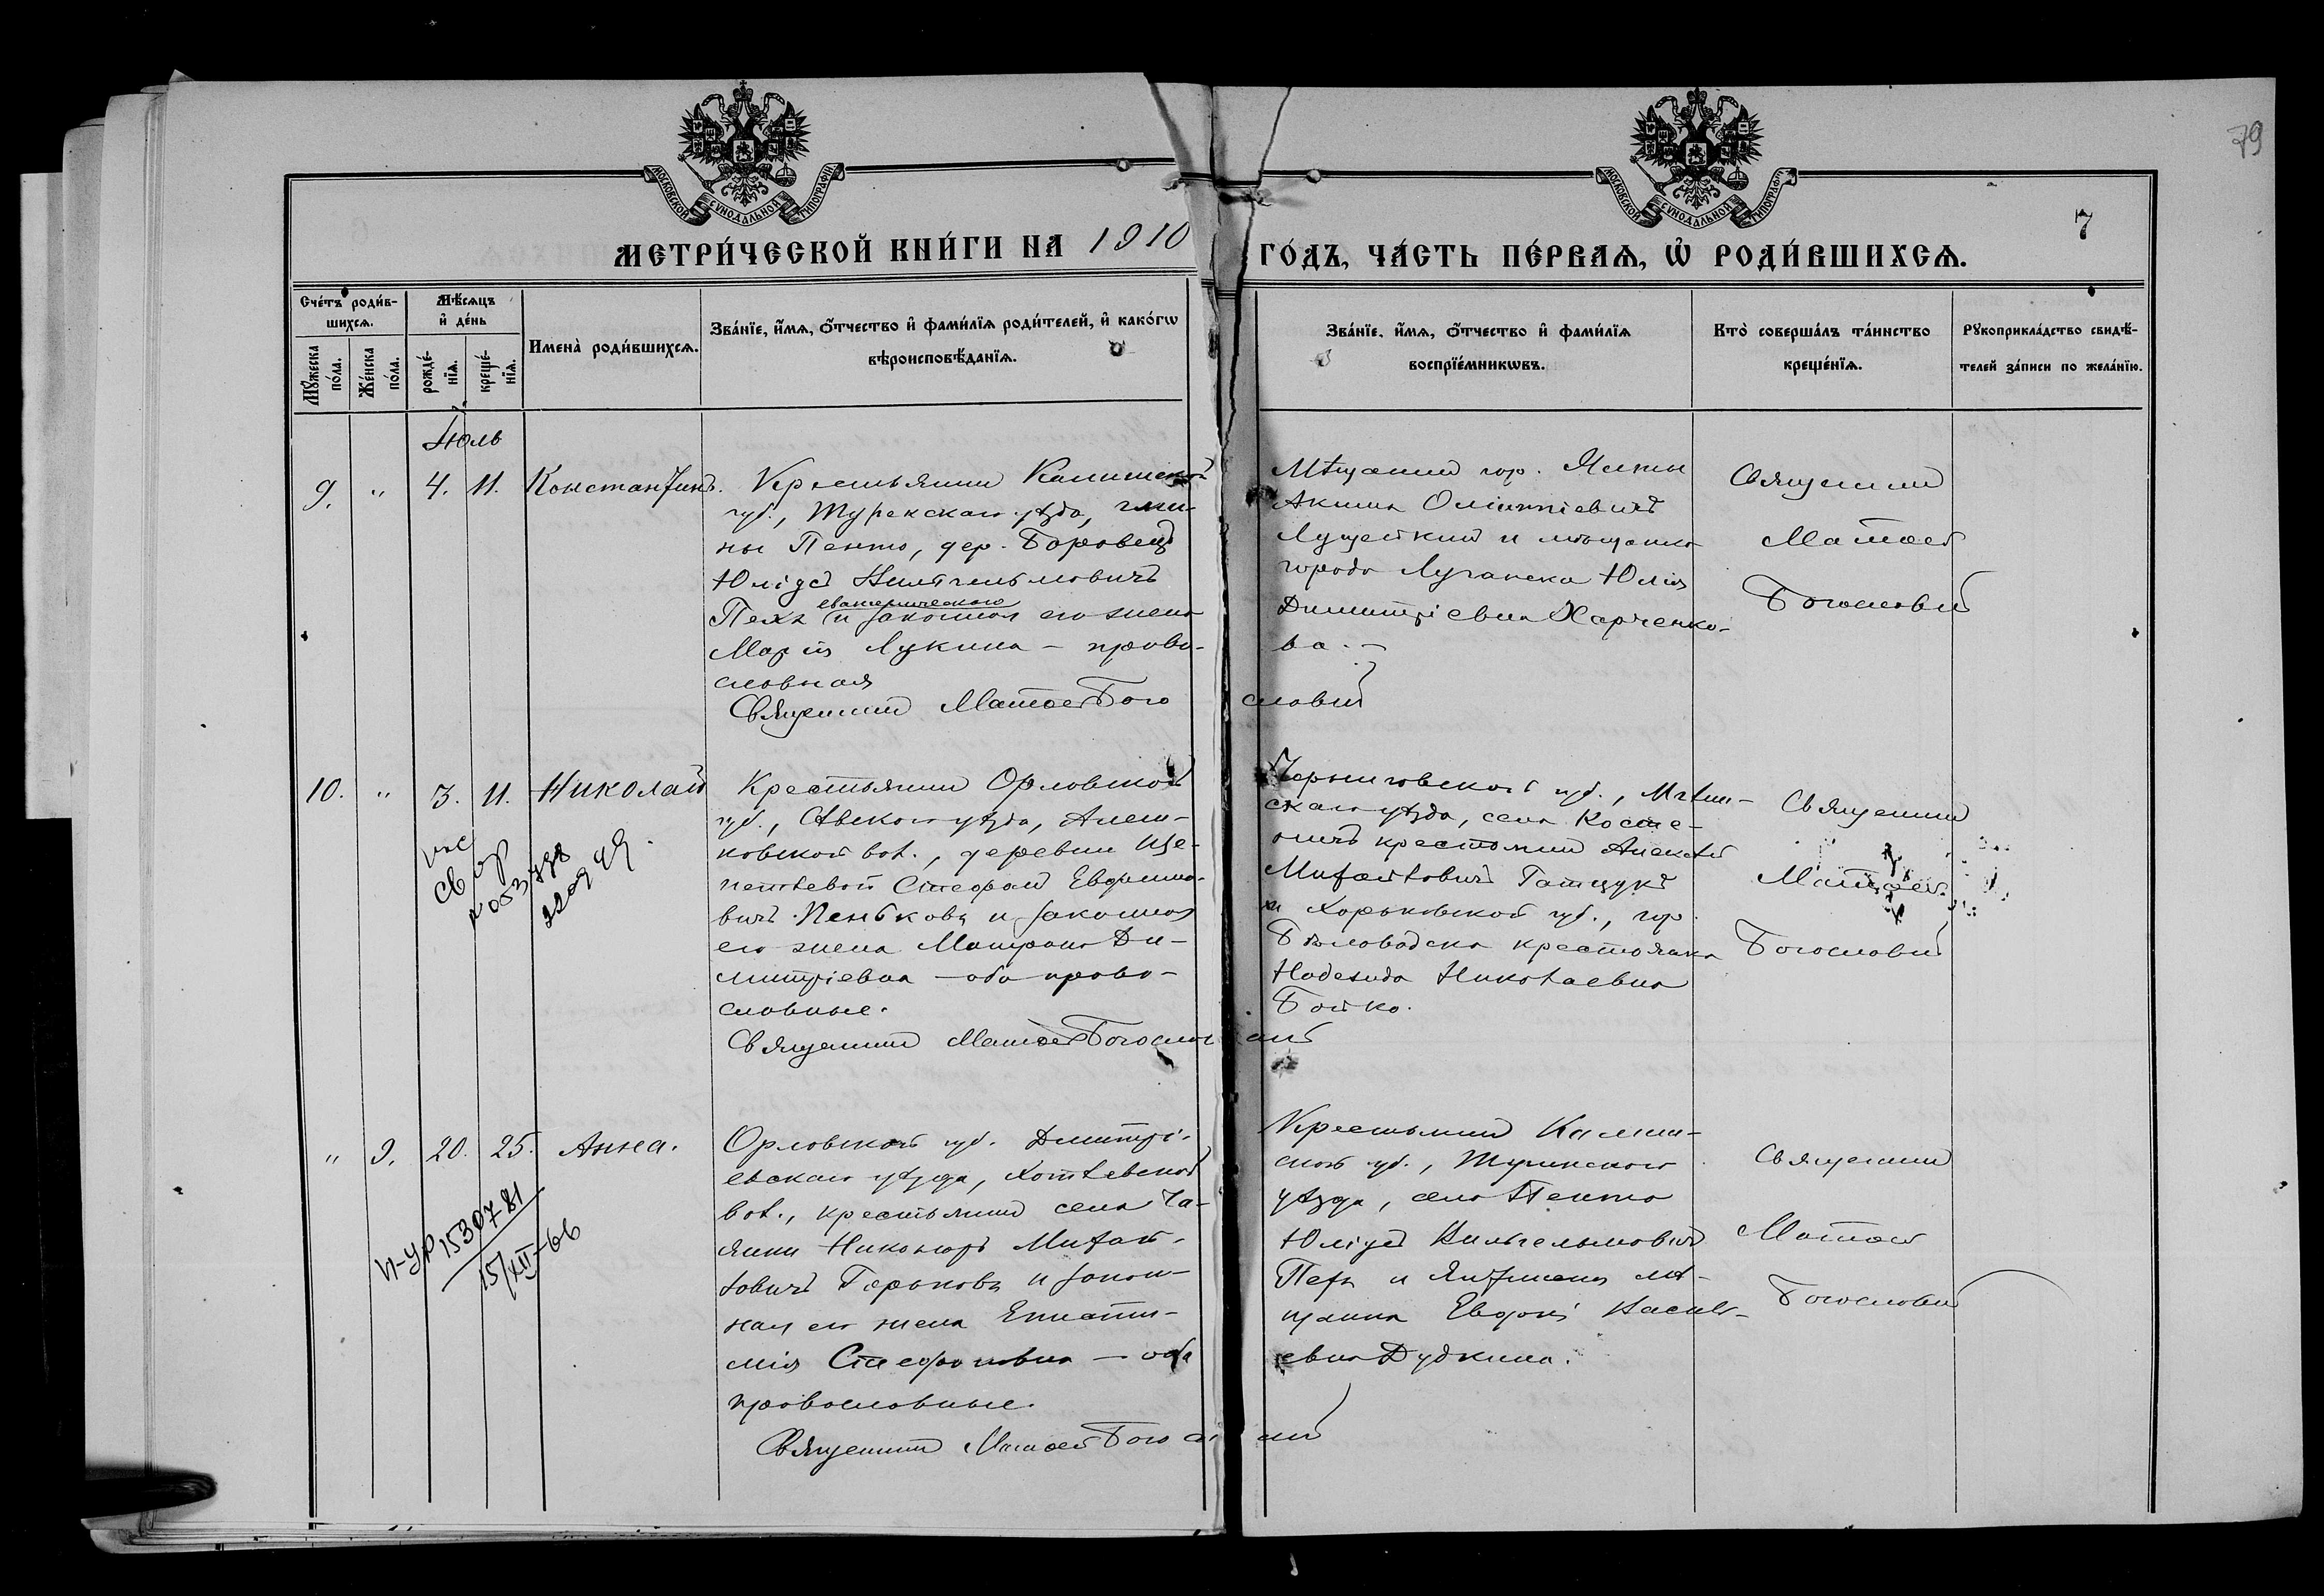 79
МОСКОВСКОЙ СѴНОДАЛЬНОЙ ТИПОГРАФІИ
МОСКОВСКОЙ СѴНОДАЛЬНОЙ ТИПОГРАФІИ
7
МЕТРИ́ЧЕСКОЙ КНИ́ГИ НА 1910 ГО́ДЪ, ЧА́СТЬ ПЕ́РВАѦ, Ѡ҆ РОДИ́ВШИХСѦ.
Сче́тъ роди́в-
шихсѧ.
Мꙋ́жеска по́ла.
Же́нска по́ла.
Мѣ́сѧцъ
и҆ де́нь
рожде́-
нїѧ.
креще́-
нїѧ.
Имена̀ роди́вшихсѧ.
Зва́нїе, и҆́мѧ, ѻ҆́тчество и҆ фами́лїѧ роди́телей, и҆ како́гѡ
вѣроисповѣ́данїѧ.
Зва́нїе, и҆́мѧ, ѻ҆́тчество и҆ фами́лїѧ
воспрїе́мникѡвъ.
Кто̀ соверша́лъ та́инство
креще́нїѧ.
Рꙋкоприкла́дство свидѣ́-
телей за́писи по жела́нїю.
Іюль
9. " 4. 11. Константинъ.
Крестьянинъ Калишской
губ., Турекскаго уѣзда, гми-
ны Пенто, дер. Боровецъ
Юлiусъ Вильгельмовичъ
евангелическаго
Пехъ и законная его жена
Марія Лукина – право-
славная
Священникъ Матѳей Богословскій
Мѣщанинъ гор. Ялты
Акимъ Олимпіевичъ
и мѣщанка
города Луганска Юлія
Димитріевна Харченко-
ва. –
Священникъ
Матѳей
Богословскій
10. " 3. 11. Николай
Крестьянинъ Орловской
губ., Сѣвскаго уѣзда, Алеш-
ковской вол., деревни Ще-
Стефанъ
Пеньковъ и законная
его жена Матрона Ди-
митріевна – оба право-
славные.
Священникъ Матѳей Богословскій
Черниговской губ., Мглин-
скаго уѣзда, села Косте-
ничъ крестьянинъ Алексѣй
Михайловичъ Гатцукъ
и Харьковской губ., гор.
Бѣловодска крестьянка
Надежда Николаевна
Бойко.
Священникъ
Матѳей
Богословскій
св ур
N 053798
" 9. 20. 25. Анна.
Орловской губ. Дмитрі-
евскаго уѣзда, Хотѣевской
вол., крестьянинъ села Ча-
янки Никоноръ Михай-
ловичъ Горьковъ и закон-
ная его жена Еписти-
мія Стефановна – оба
православные.
Священникъ Матѳей Богословскій
Крестьянинъ Калиш-
ской губ., Турекскаго
уѣзда, села Пенто
Юлiусъ Вильгельмовичъ
Пехъ и Ялтинская мѣ-
щанка Евдокія Василь-
евна Дудкина.
Священникъ
Матѳей
Богословскій
И-УР 1530781
15/XII-66